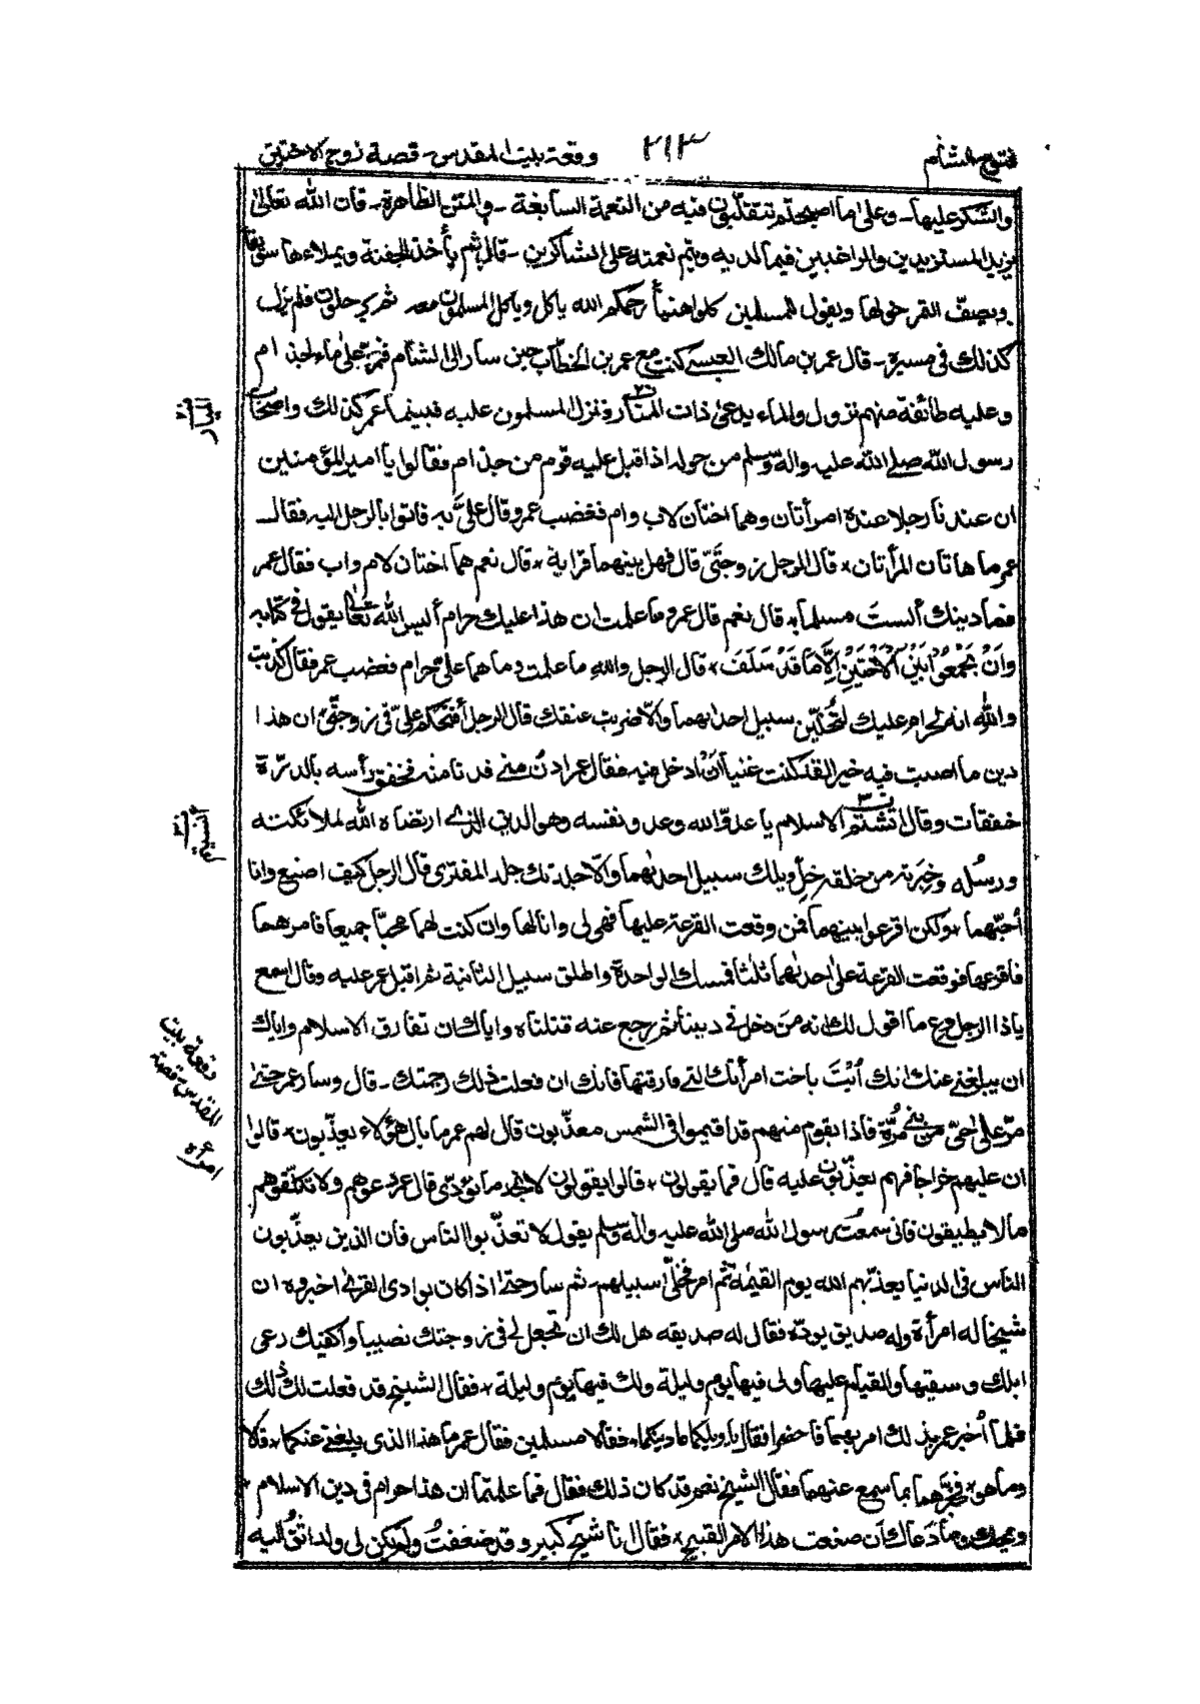 فتوح الشام
٢١٣
وقعة بيت المقدس - قصة زوج الاختين
والشكر عليها - وعلى ما اصبحتم تتقلبون فيه من النعمة السابغة - والمنن الظاهرة - فان الله تعالى
يزيد المستزيدين والراغبين فيما لديه ويتم نعمته على الشاكرين - قال ثم يأخذ الجفنة ويملاءها سويقا
ويصفّ التمر حولها ويقول للمسلمين كلوا هنيأ رحمكم الله ياكل وياكل المسلمون معه ثم يرحلون فلم يزل
كذلك فى مسيره - قال عمر بن مالك العبسے كنت مع عمر بن الخطاب حين سار الى الشام فمرّ على ماء لجذام
وعليه طائفة منهم نزول والماء يدعى ذات المنار ونزل المسلمون عليه فبينما عمر كذلك واصحاب
رسول الله صلے الله عليه واله وسلم من حوله اذ اقبل عليه قوم من جذام فقالوا يا امير المؤمنين
ان عندنا رجلا عنده امرأتان وهما اختان لاب وام فغضب عمر وقال علىّ به فاتوا بالرجل اليه فقال
عمر ما هاتان المرأتان × قال الرجل زوجتىّ قال فهل بينهما قرابة × قال نعم هما اختان لام واب فقال عمر
فما دينك ألستَ مسلما × قال نعم قال عمر وما علمت ان هذا عليك حرام أليس الله تعالى يقول فى كتابه
وَاَنْ تَجْمَعُوْا بَيْنَ الْاُخْتَيْنِ اِلَّا مَا قَدْ سَلَفَ × قال الرجل والله ما علمت وما هما علىّ حرام فغضب عمر فقال كذبت
والله انه لحرام عليك لتُخلّين سبيل احدٰىهما والّا ضربت عنقك قال الرجل أفتحكم علىّ فى زوجتىّ ان هذا
دين ما اصبت فيه خيرا لقد كنت غنيا أن ادخل فيه فقال عمر ادن منے فدنا منه فخفق رأسه بالدرّة
خفقات وقال اتشتم الاسلام يا عدوّ الله وعدو نفسه وهو الدين الذے ارتضاه الله لملائكته
ورسُله وخيرته من خلقه خلّ ويلك سبيل احدٰىهما والّا جلدتك جلد المفترى قال الرجل كيف اصنع وانا
أحبّهما × ولكن اقرعوا بينهما فمن وقعت القرعة عليها فهى لى وانا لها وان كنت لهما محبّا جميعا فامر هما
فاقرعها فوقعت القرعة على احدٰىهما ثلثا فمسك الواحدة واطلق سبيل الثانية ثم اقبل عمر عليه وقال اسمع
يا ذا الرجل وع ما اقول لك انه من دخل فى ديننا ثم رجع عنه قتلناه واياك ان تفارق الاسلام واياك
ان يبلغنے عنك انك أتيتَ باخت امرأتك التے فارقتها فانك ان فعلت ذلك رجمتك - قال وسار عمر حتےٰ
مرّ على حىّ من بنے مُرّة فاذا بقوم منهم قد اقيموا فى الشمس معذّبون قال لهم عمر ما بال هؤلاء يعذّبون × قالوا
ان عليهم خراجا فهم يعذّبون عليه قال فما يقولون × قالوا يقولون لا نجد ما نؤدّى قال عمر دعوهم ولا تكلّفوهم
ما لا يطيقون فانى سمعت رسول الله صلے الله عليه واله وسلم يقول لا تعذّبوا الناس فان الذين يعذّبون
الناس فى الدنيا يعذّبهم الله يوم القيٰمة ثم امر فخلّٰى سبيلهم - ثم سار حتےٰ اذا كان بوادى القرىٰ اخبروه ان
شيخا له امرأة وله صديق يودّه فقال له صديقه هل لك ان تجعل لى فى زوجتك نصيبا واكفيك رعى
ابلك وسقيها والقيام عليها ولى فيها يوم وليلة ولك فيها يوم وليلة × فقال الشيخ قد فعلت لك ذلك
فلما أُخبر عمر بذلك امر بهما فاحضرا فقال يا ويلكما ما دينكما × فقالا مسلمين فقال عمر ما هذا الذى بلغنے عنكما × قالا
وما هو × فخبّرهما بما سمع عنهما فقال الشيخ نعم قد كان ذلك فقال فما علمتما ان هذا حرام فى دين الاسلام ×
ويحك وما دعاك ان صنعت هذا الامر القبيح × فقال انا شيخ كبير وقد ضعفتُ ولم يكن لى ولد اثق اليه
وقعة بيت
المقدس قصة
امرأة